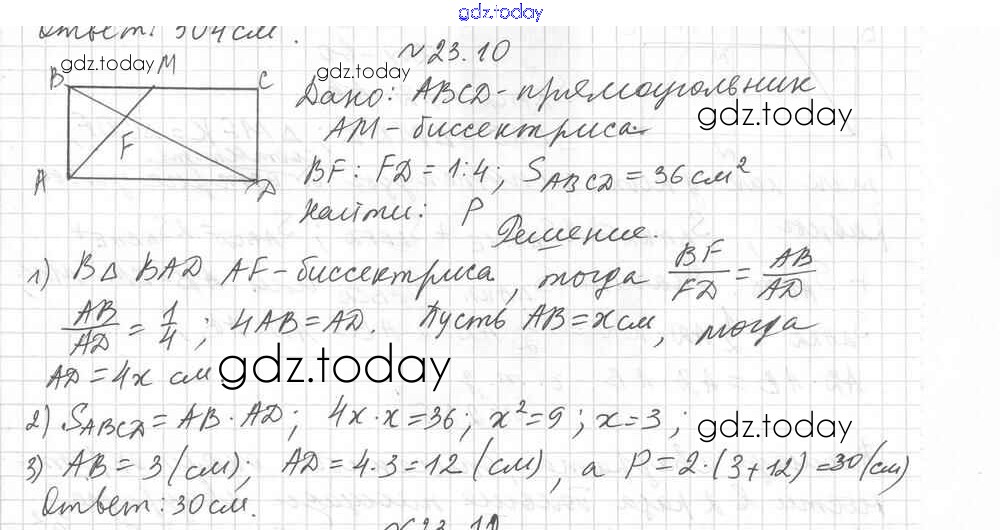 gdz.today
Ответ: 304 см.
№ 23.10
gdz.today
B M C
F
A D
gdz.today
Дано: ABCD - прямоугольник
gdz.today
AM - биссектриса
BF : FD = 1:4; S_ABCD = 36 см²
Найти: P
Решение.
1) В △ BAD AF - биссектриса, тогда BF/FD = AB/AD
AB/AD = 1/4; 4AB = AD. Пусть AB = x см, тогда
AD = 4x см
gdz.today
2) S_ABCD = AB · AD; 4x · x = 36; x² = 9; x = 3;
gdz.today
3) AB = 3 (см); AD = 4 · 3 = 12 (см), а P = 2 · (3 + 12) = 30 (см)
Ответ: 30 см.